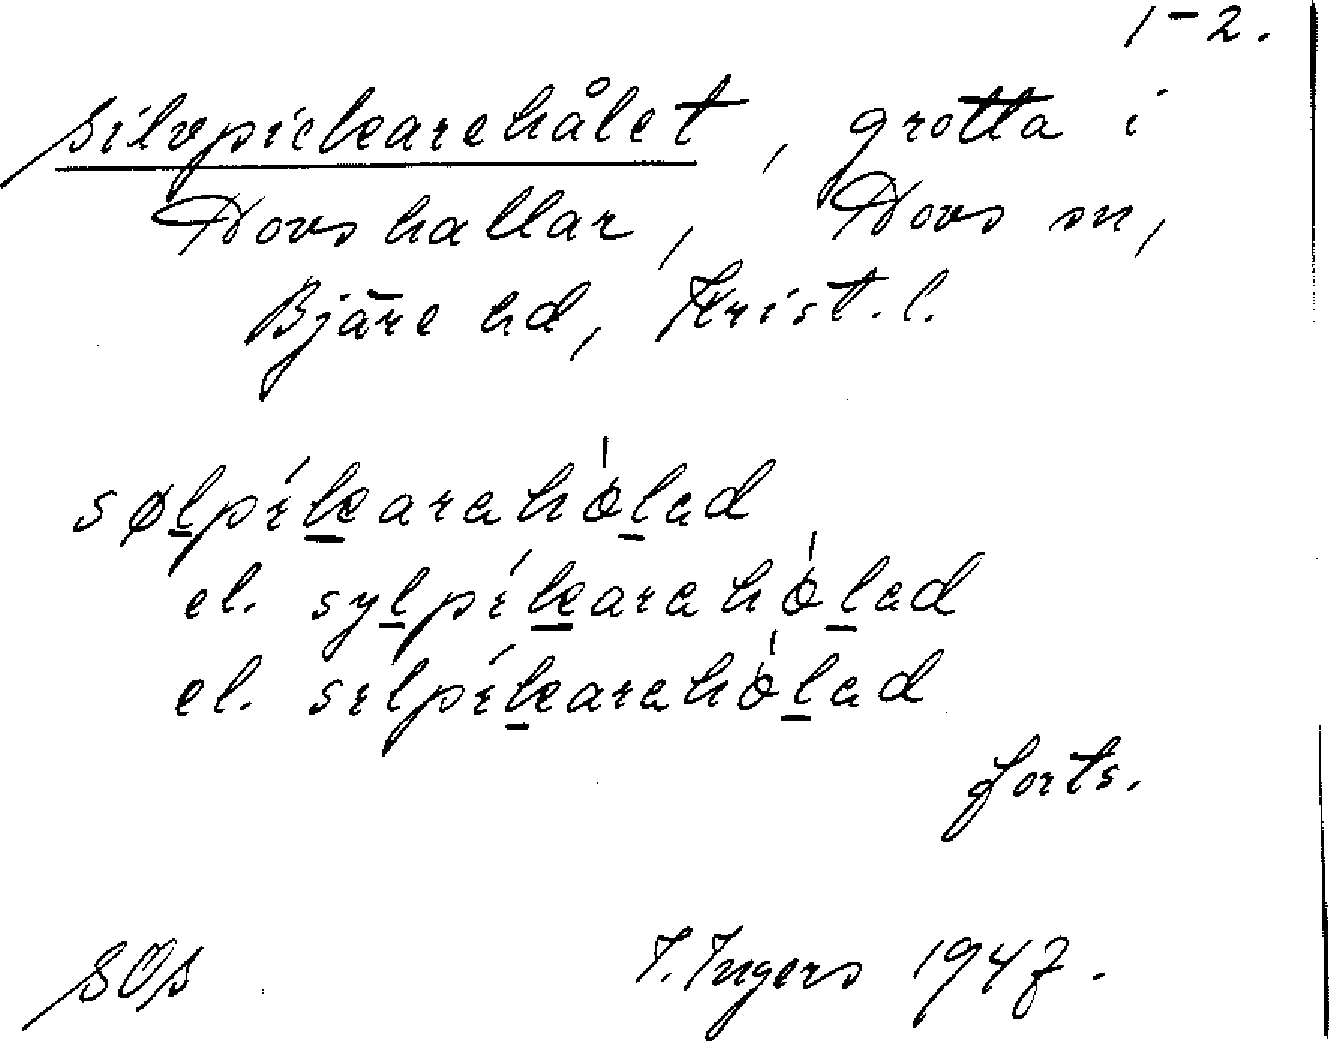 1-2.
Silvpickarehålet, grotta i
Hovs hallar, Hovs sn,
Bjäre hd, Krist. l.
sølpíkarahòlad
el. sylpíkarahòlad
el. sılpíkarahòlad
forts.
SOS I. Ingers 1947.